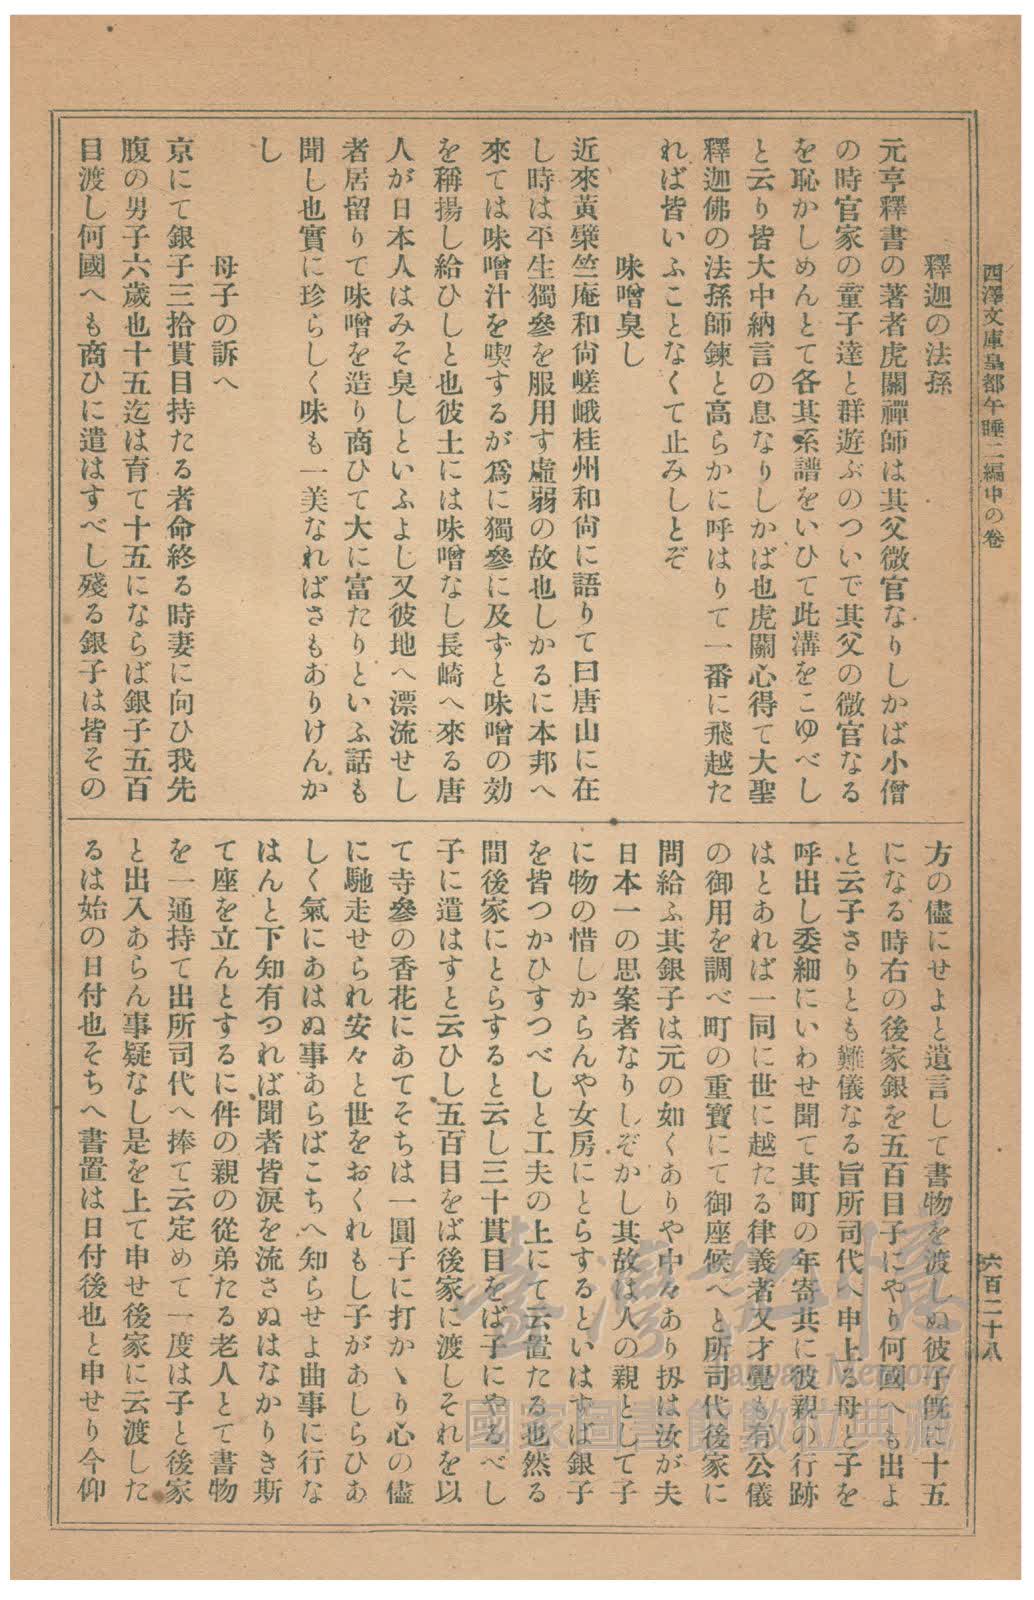 西澤文庫皇都午睡二編中の卷
六百二十八
釋迦の法孫
元亨釋書の著者虎關禪師は其父微官なりしかば小僧
の時官家の童子達と群遊ぶのついで其父の微官なる
を恥かしめんとて各其系譜をいひて此溝をこゆべし
と云り皆大中納言の息なりしかば也虎關心得て大聖
釋迦佛の法孫師鍊と高らかに呼はりて一番に飛越た
れば皆いふことなくて止みしとぞ
味噌臭し
近來黃檗竺庵和尙嵯峨桂州和尙に語りて曰唐山に在
し時は平生獨參を服用す虛弱の故也しかるに本邦へ
來ては味噌汁を喫するが爲に獨參に及ずと味噌の効
を稱揚し給ひしと也彼土には味噌なし長崎へ來る唐
人が日本人はみそ臭しといふよし又彼地へ漂流せし
者居留りて味噌を造り商ひて大に富たりといふ話も
聞し也實に珍らしく味も一美なればさもありけんか
し
母子の訴へ
京にて銀子三拾貫目持たる者命終る時妻に向ひ我先
腹の男子六歲也十五迄は育て十五にならば銀子五百
目渡し何國へも商ひに遣はすべし殘る銀子は皆その
方の儘にせよと遺言して書物を渡しぬ彼子既に十五
になる時右の後家銀を五百目子にやり何國へも出よ
と云子さりとも難儀なる旨所司代へ申上る母と子を
呼出し委細にいわせ聞て其町の年寄共に彼親の行跡
はとあれば一同に世に越たる律義者又才覺も有公儀
の御用を調べ町の重寶にて御座候へと所司代後家に
問給ふ其銀子は元の如くありや中々あり扨は汝が夫
日本一の思案者なりしぞかし其故は人の親として子
に物の惜しからんや女房にとらするといはすば銀子
を皆つかひすつべしと工夫の上にて云置たる也然る
間後家にとらすると云し三十貫目をば子にやるべし
子に遣はすと云ひし五百目をば後家に渡しそれを以
て寺參の香花にあてそちは一圓子に打かゝり心の儘
に馳走せられ安々と世をおくれもし子があしらひあ
しく氣にあはぬ事あらばこちへ知らせよ曲事に行な
はんと下知有つれば聞者皆淚を流さぬはなかりき斯
て座を立んとするに件の親の從弟たる老人とて書物
を一通持て出所司代へ捧て云定めて一度は子と後家
と出入あらん事疑なし是を上て申せ後家に云渡した
るは始の日付也そちへ書置は日付後也と申せり今仰
臺灣記憶
Taiwan Memory
國家圖書館數位典藏